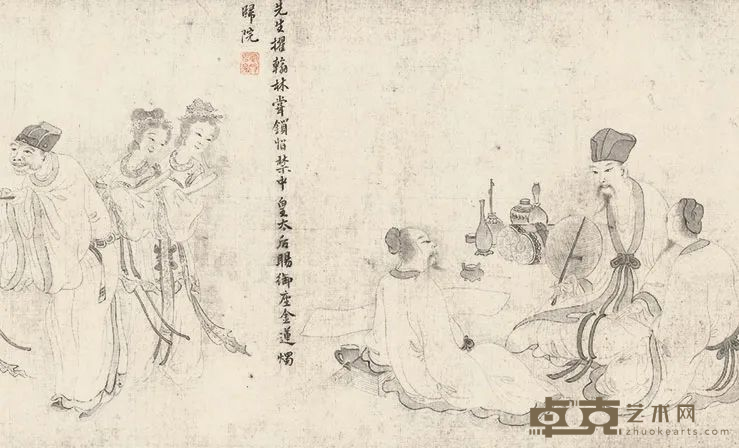 先生擢翰林嘗鎖宿禁中皇太后賜御座金蓮燭
歸院
卓克艺术网
zhuokearts.com